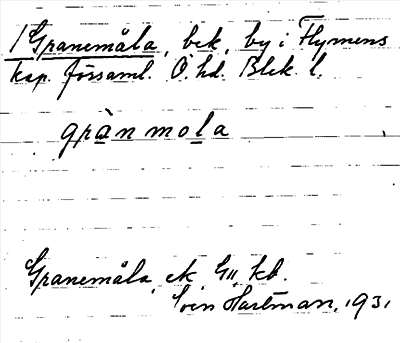 1 Granemåla, bek, by i Flymens
kap. församl. Ö. hd. Blek. l.
grànmola
Granemåla ek G11 kb.
Sven Hartman, 1931